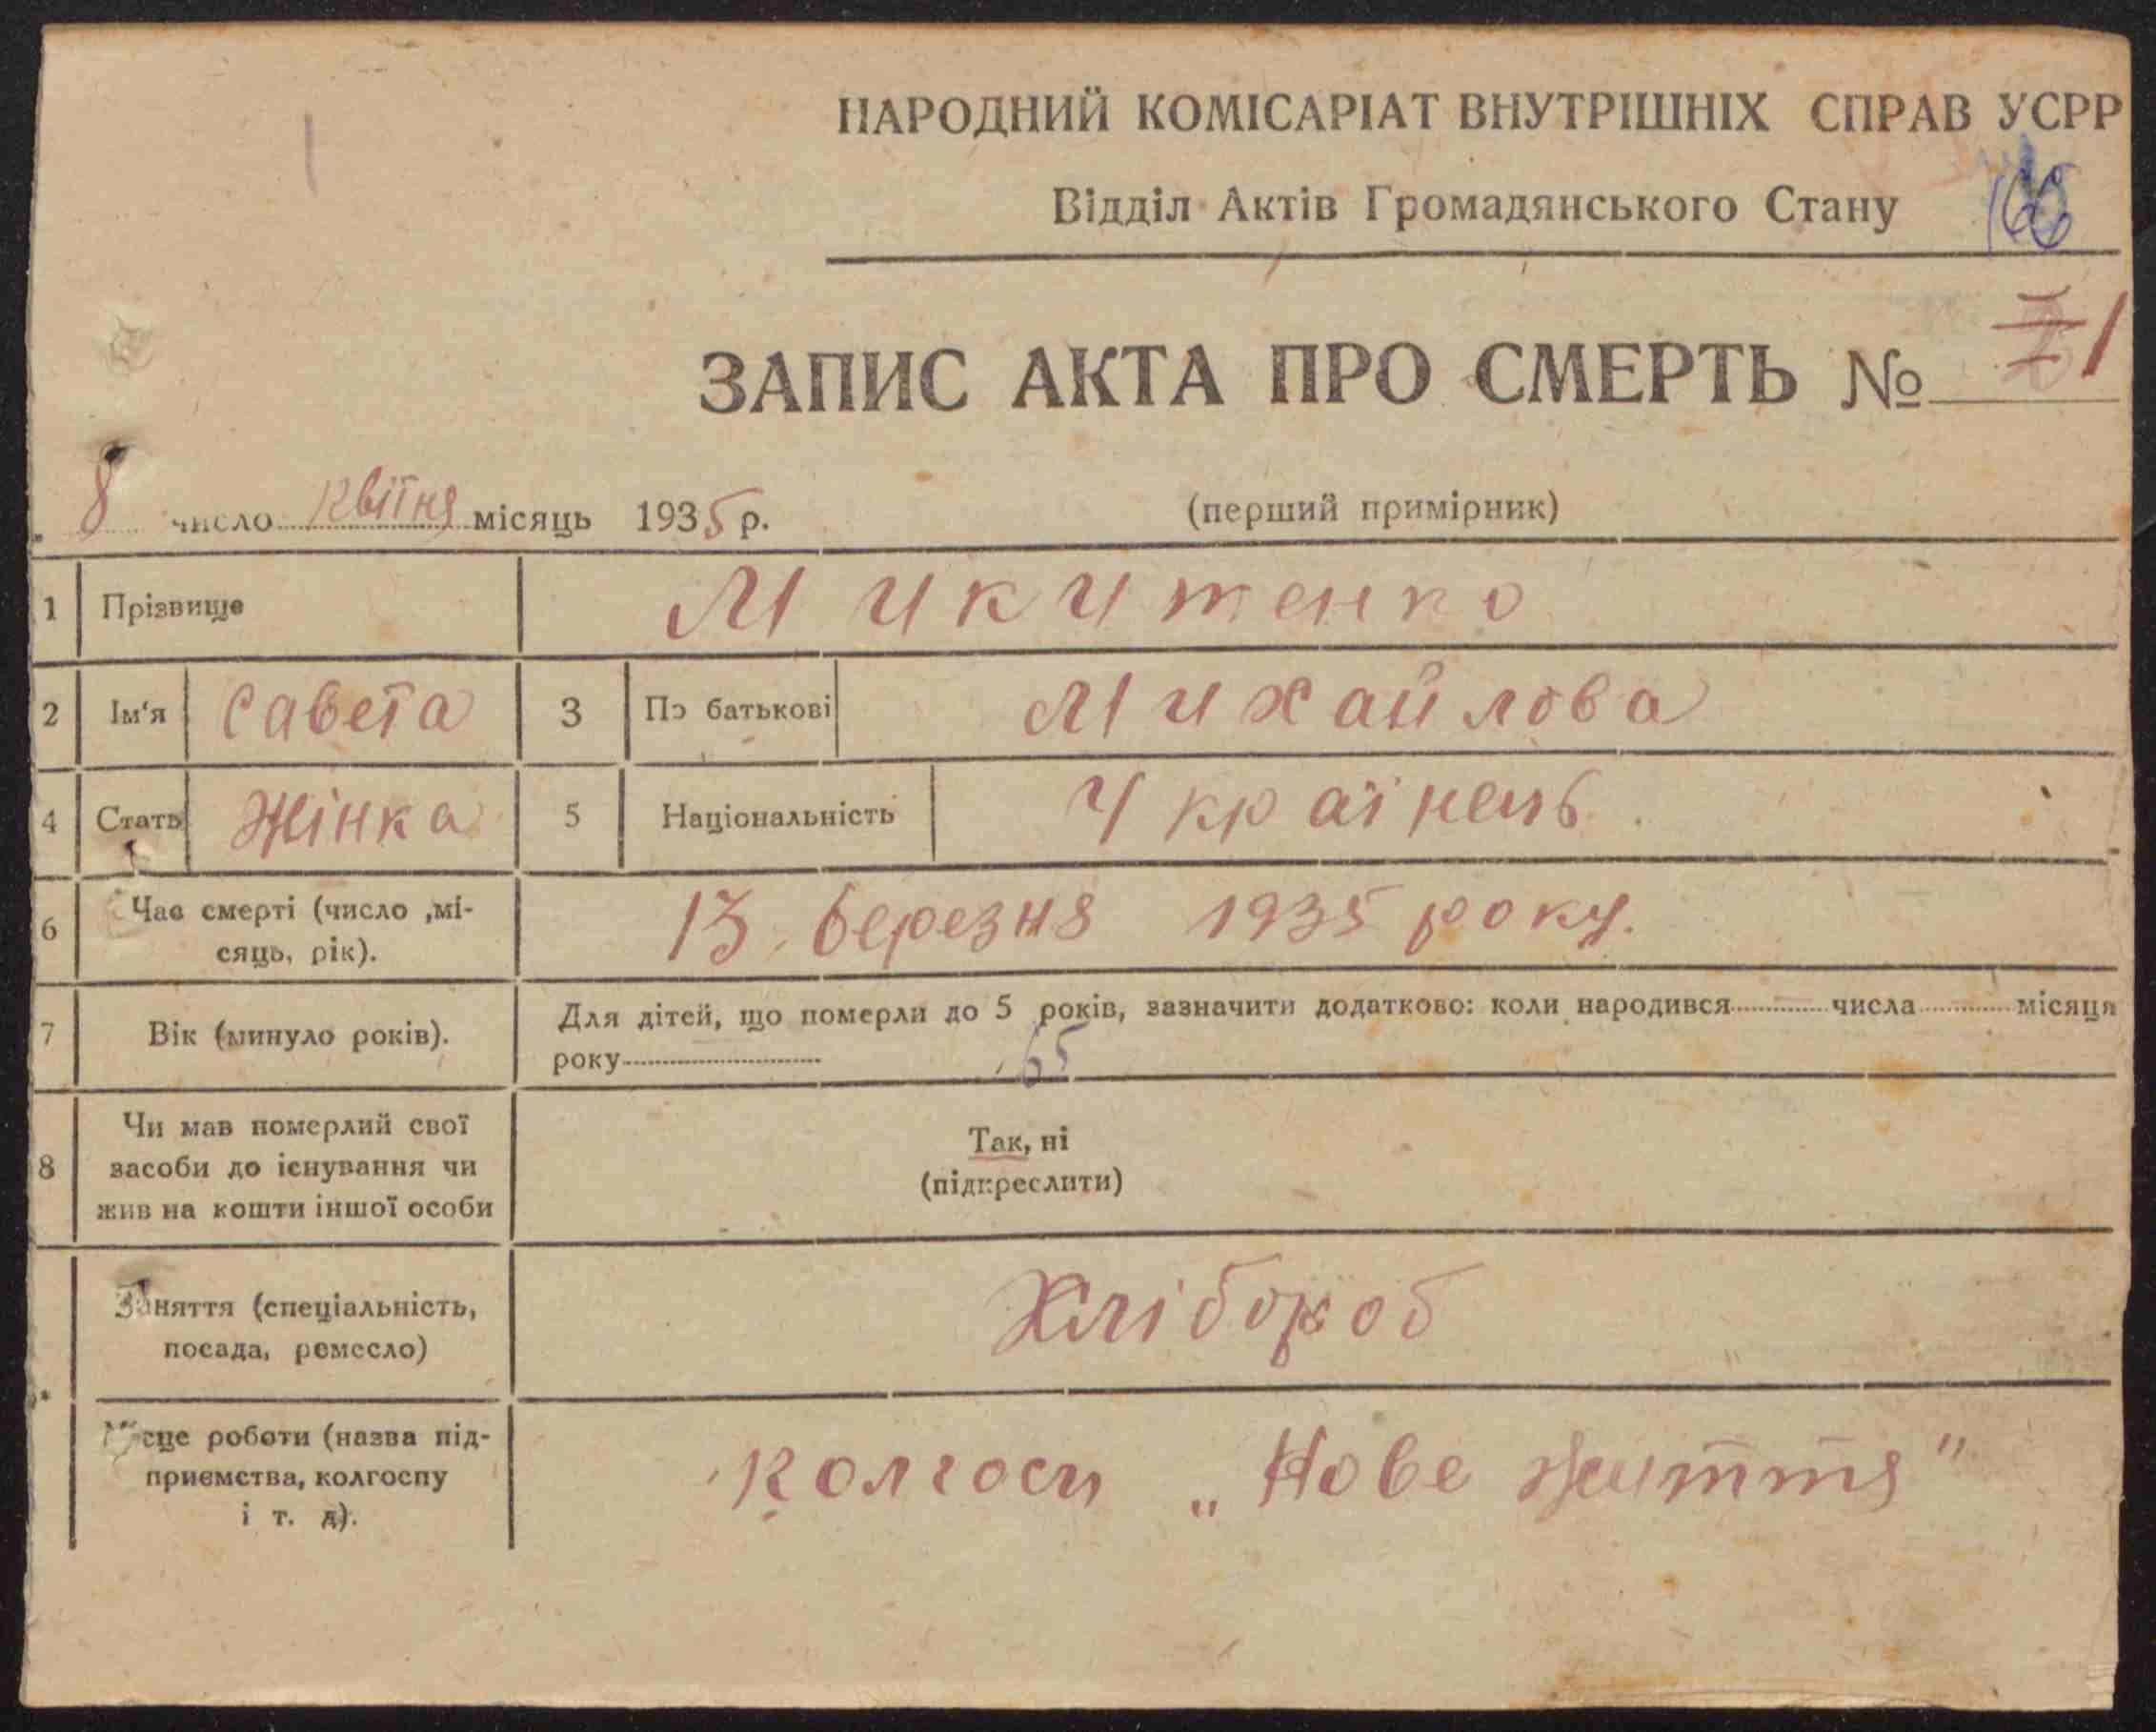 НАРОДНИЙ КОМІСАРІАТ ВНУТРІШНІХ СПРАВ УСРР
Відділ Актів Громадянського Стану
ЗАПИС АКТА ПРО СМЕРТЬ № 1
8 число квітня місяць 1935 р. (перший примірник)
1 Прізвище Микитенко
2 Ім'я Савета 3 По батькові Михайлова
4 Стать Жінка 5 Національність Українець
6 Час смерті (число ,мі-
сяць, рік). 13 березня 1935 року.
7 Вік (минуло років). Для дітей, що померли до 5 років, зазначити додатково: коли народився числа місяця
року 65
Чи мав померлий свої
8 засоби до існування чи
жив на кошти іншої особи
Так, ні
(підкреслити)
Заняття (спеціальність,
посада, ремесло)
Хлібороб
Місце роботи (назва під-
приємства, колгоспу
і т. д).
колгосп „Нове життя"